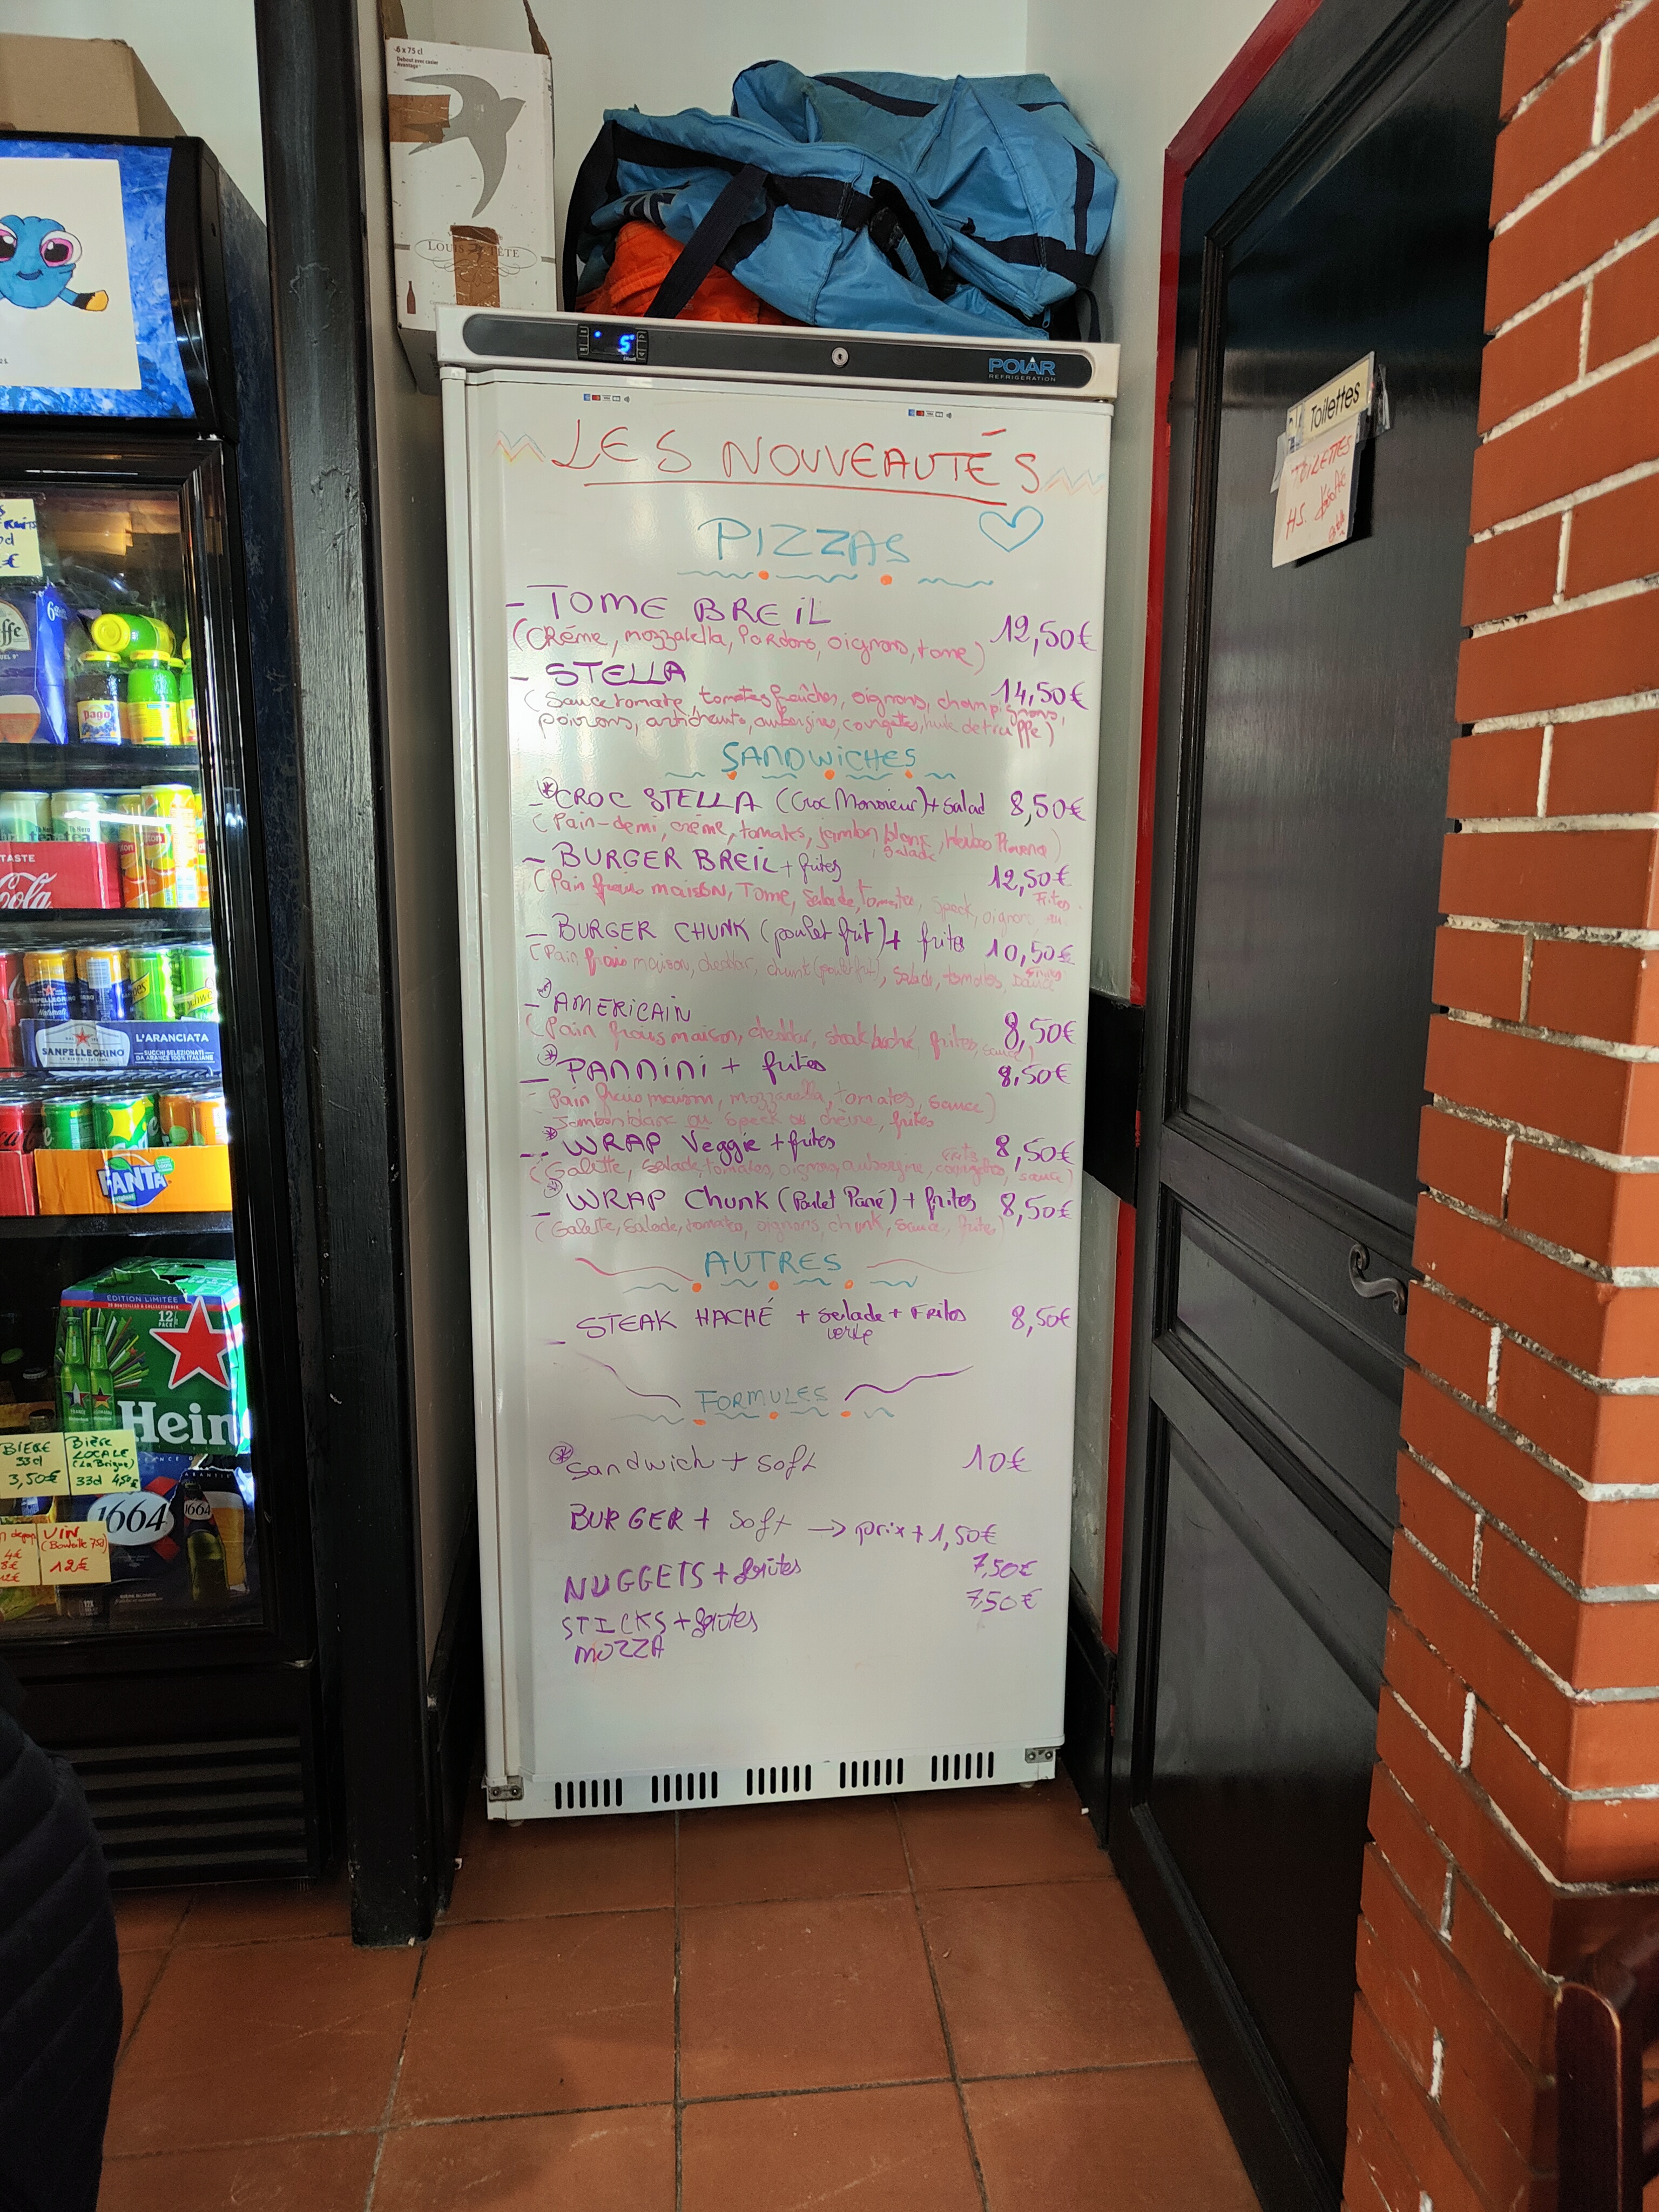 6 x 75 cl
LOUIS TÊTE
POLAR
REFRIGERATION
5
LES NOUVEAUTÉS
PIZZAS
- TOME BREIL 12,50€
(Crème, mozzarella, lardons, oignons, tome)
- STELLA 14,50€
(Sauce tomate, tomates fraîches, oignons, champignons,
poivrons, artichauts, aubergines, courgettes, huile de truffe)
SANDWICHES
- CROC STELLA (Croc Monsieur) + Salad 8,50€
(Pain-demi, crème, tomates, jambon blanc, Herbes Provence)
salade
- BURGER BREIL + frites 12,50€
(Pain frais maison, Tome, Salade, tomates, Speck, oignons
Frites
- BURGER CHUNK (poulet frit) + frites 10,50€
(Pain frais maison, cheddar, chunk (poulet frit), salade, tomates, sauce
frites
- AMERICAIN 8,50€
(Pain frais maison, cheddar, steak haché, frites, sauce)
- PANNINI + frites 8,50€
Pain frais maison, mozzarella, tomates, sauce)
Jambon blanc ou Speck ou chèvre, frites
- WRAP Veggie + frites 8,50€
(Galette, salade, tomates, oignons, aubergine, courgettes, sauce)
- WRAP Chunk (Poulet Pané) + frites 8,50€
(Galette, Salade, tomates, oignons, chunk, sauce, frites)
AUTRES
- STEAK HACHÉ + salade + Frites 8,50€
verte
FORMULES
Sandwich + soft 10€
BURGER + Soft → prix + 1,50€
NUGGETS + frites 7,50€
STICKS + frites 7,50€
MOZZA
Toilettes
TOILETTES
HS.
6
pago
tea tea
TASTE
Cola
SANPELLEGRINO
L'ARANCIATA
SUCCHI SELEZIONATI
DA ARANCE 100% ITALIANE
FANTA
EDITION LIMITÉE
12
PACK
Hein
BIERE
33cl
3,50€
Bière
LOCALE
(La Brigue)
33cl
1664
1664
VIN
(Bouteille 75cl)
12€